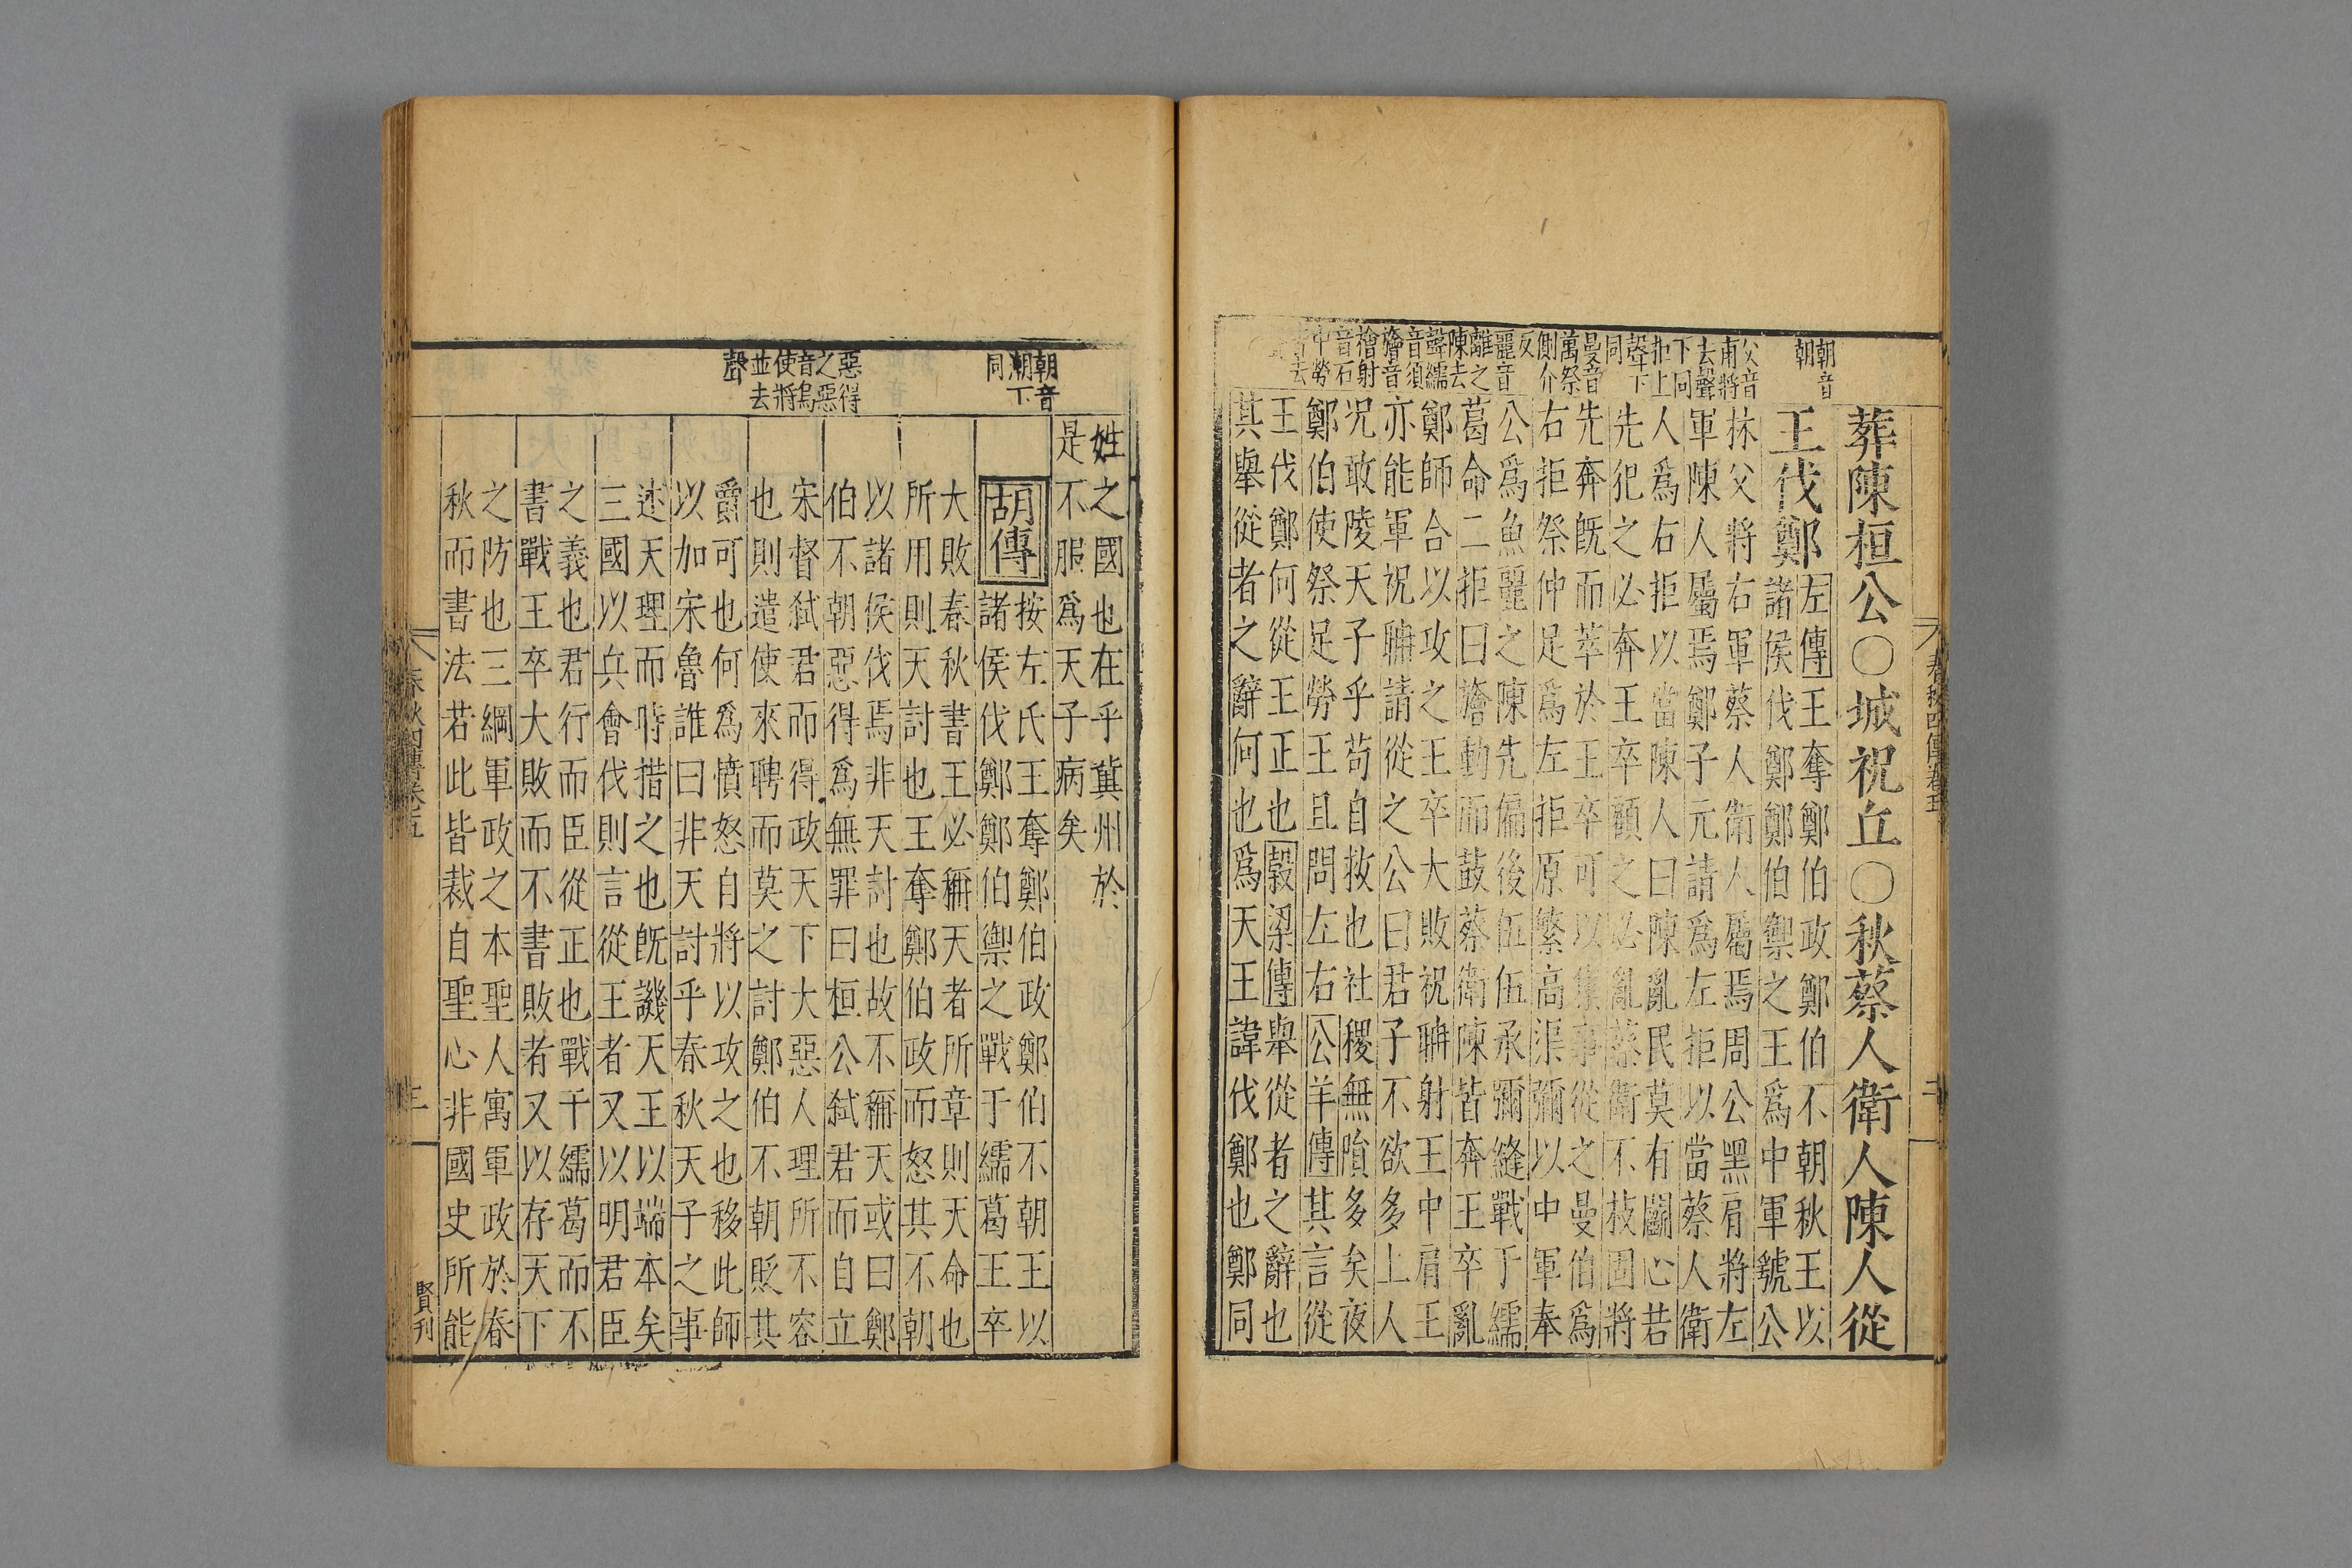 朝音
朝
父音
甫將
去聲
下同
拒上
聲下
同
曼音
萬祭
側介
反
麗音
離之
陳去
聲繻
音須
旝音
檜射
音石
中勞
去
葬陳桓公○城祝丘○秋蔡人衛人陳人從
王伐鄭
左傳王奪鄭伯政鄭伯不朝秋王以
諸侯伐鄭鄭伯禦之王爲中軍虢公
林父將右軍蔡人衛人屬焉周公黑肩將左
軍陳人屬焉鄭子元請爲左拒以當蔡人衛
人爲右拒以當陳人曰陳亂民莫有鬭心若
先犯之必奔王卒顧之必亂蔡衛不枝固將
先奔旣而萃於王卒可以集事從之曼伯爲
右拒祭仲足爲左拒原繁高渠彌以中軍奉
公爲魚麗之陳先偏後伍伍承彌縫戰于繻
葛命二拒曰旝動而鼓蔡衛陳皆奔王卒亂
鄭師合以攻之王卒大敗祝聃射王中肩王
亦能軍祝聃請從之公曰君子不欲多上人
况敢陵天子乎苟自救也社稷無隕多矣夜
鄭伯使祭足勞王且問左右公羊傳其言從
王伐鄭何從王正也穀梁傳舉從者之辭也
其舉從者之辭何也爲天王諱伐鄭也鄭同
春秋四傳卷五
朝音
潮下
同
惡得
之惡
音烏
使將
並去
聲
姓之國也在乎冀州於
是不服爲天子病矣
胡傳
按左氏王奪鄭伯政鄭伯不朝王以
諸侯伐鄭鄭伯禦之戰于繻葛王卒
大敗春秋書王必稱天者所章則天命也
所用則天討也王奪鄭伯政而怒其不朝
以諸侯伐焉非天討也故不稱天或曰鄭
伯不朝惡得爲無罪曰桓公弑君而自立
宋督弑君而得政天下大惡人理所不容
也則遣使來聘而莫之討鄭伯不朝貶其
爵可也何爲憤怒自將以攻之也移此師
以加宋魯誰曰非天討乎春秋天子之事
述天理而時措之也旣譏天王以端本矣
三國以兵會伐則言從王者又以明君臣
之義也君行而臣從正也戰于繻葛而不
書戰王卒大敗而不書敗者又以存天下
之防也三綱軍政之本聖人寓軍政於春
秋而書法若此皆裁自聖心非國史所能
春秋四傳卷五
賢刊